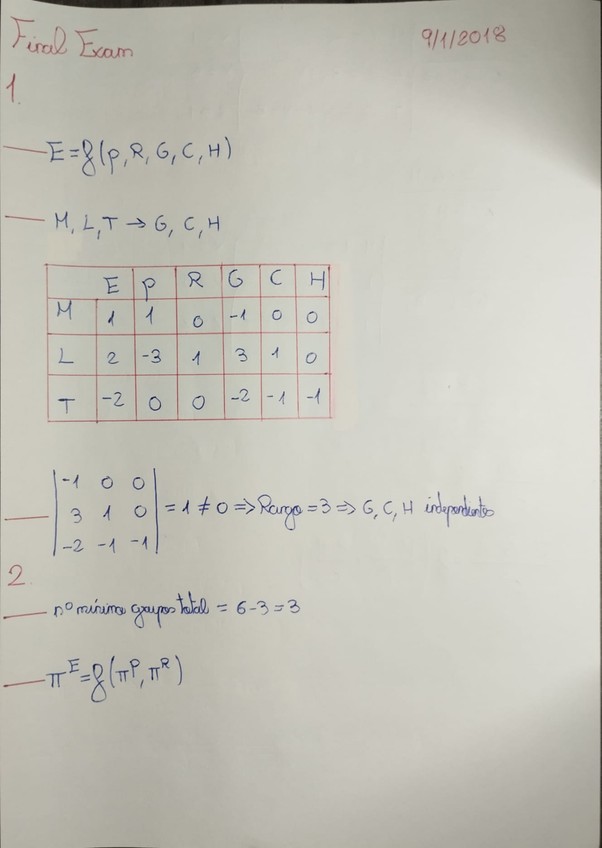 Final Exam 9/1/2018
1.
E=f(p, R, G, C, H)
M, L, T → G, C, H
E P R G C H
M 1 1 0 -1 0 0
L 2 -3 1 3 1 0
T -2 0 0 -2 -1 -1
|-1 0 0|
|3 1 0| = 1 ≠ 0 => Rango = 3 => G, C, H independientes
|-2 -1 -1|
2.
nº mínimo grupos total = 6-3 = 3
π^E = f(π^P, π^R)